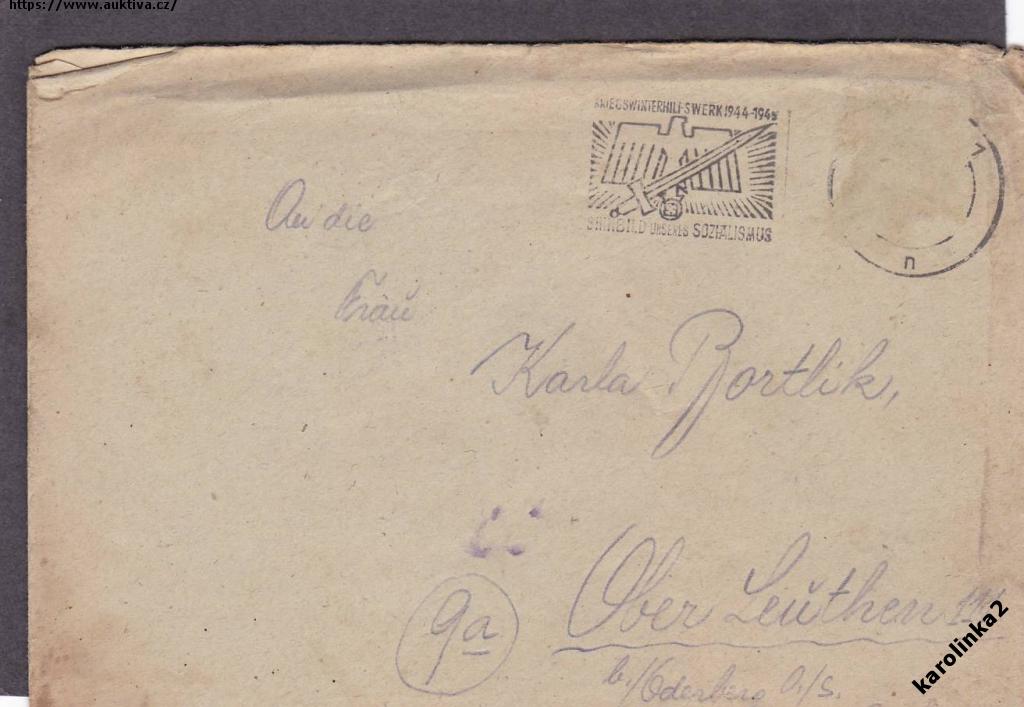 https://www.auktiva.cz/
KRIEGSWINTERHILFSWERK 1944-1945
SINNBILD UNSERES SOZIALISMUS
n
An die
Frau
Karla Bortlik,
9a
Ober Leuthen
b./Oderberg O./S.
karolinka2